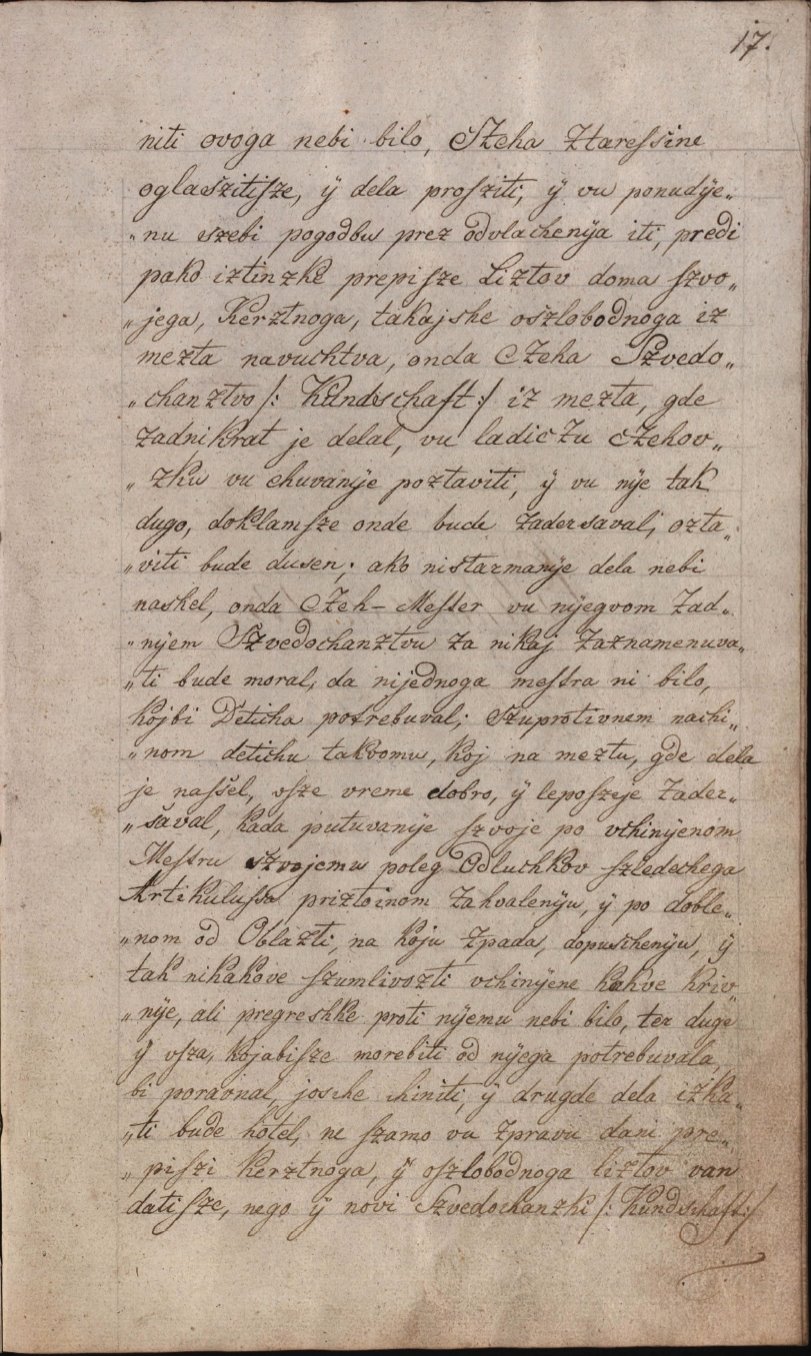 17.
niti ovoga nebi bilo, Czeha Ztaressine
oglaszitisze, ÿ dela prosziti, ÿ vu ponudÿe„
„nu szebi pogodbu prez odvlachenÿa iti, predi
pako iztinzke prepisze Liztov doma szvo„
„jega, Kerztnoga, takajshe oszlobodnoga iz
mezta navuchtva, onda Czeha Szvedo„
„chanztvo /: Kundschaft :/ iz mezta, gde
zadnikrat je delal, vu ladiczu Czehov„
„zku vu chuvanÿe poztaviti, ÿ vu nÿe tak
dugo, doklamsze onde bude zadersaval, ozta„
„viti bude dusen; ako nistarmanÿe dela nebi
naskel, onda Czeh-Mester vu nÿegvom zad„
„nÿem Szvedochanztvu za nikaj zaznamenuva„
„ti bude moral, da nijednoga mestra ni bilo,
kojbi Deticha potrebuval; Szuprotivnem nachi„
„nom detichu takvomu, koj na meztu, gde dela
je nassel, vsze vreme dobro, ÿ leposzeje zader„
„saval, kada putuvanÿe szvoje po vchinÿenom
Mestru szvojemu poleg Odluchkov szledechega
Artikulussa priztoinom zahvalenÿu, ÿ po doble„
„nom od Oblazti, na koju zpada, dopuschenÿu, ÿ
tak nikakove szumlivozti vchinÿene kakve kriv„
„nÿe, ali pregreshke proti nÿemu nebi bilo, ter duge
ÿ vsza, kojabisze morebiti od nÿega potrebuvala,
bi poravnal, josche chiniti, ÿ drugde dela izka„
„ti bude hotel, ne szamo vu zpravu dani pre„
„piszi Kerztnoga, ÿ oszlobodnoga liztov van
datisze, nego ÿ novi Szvedochanzki /: Kundschaft :/